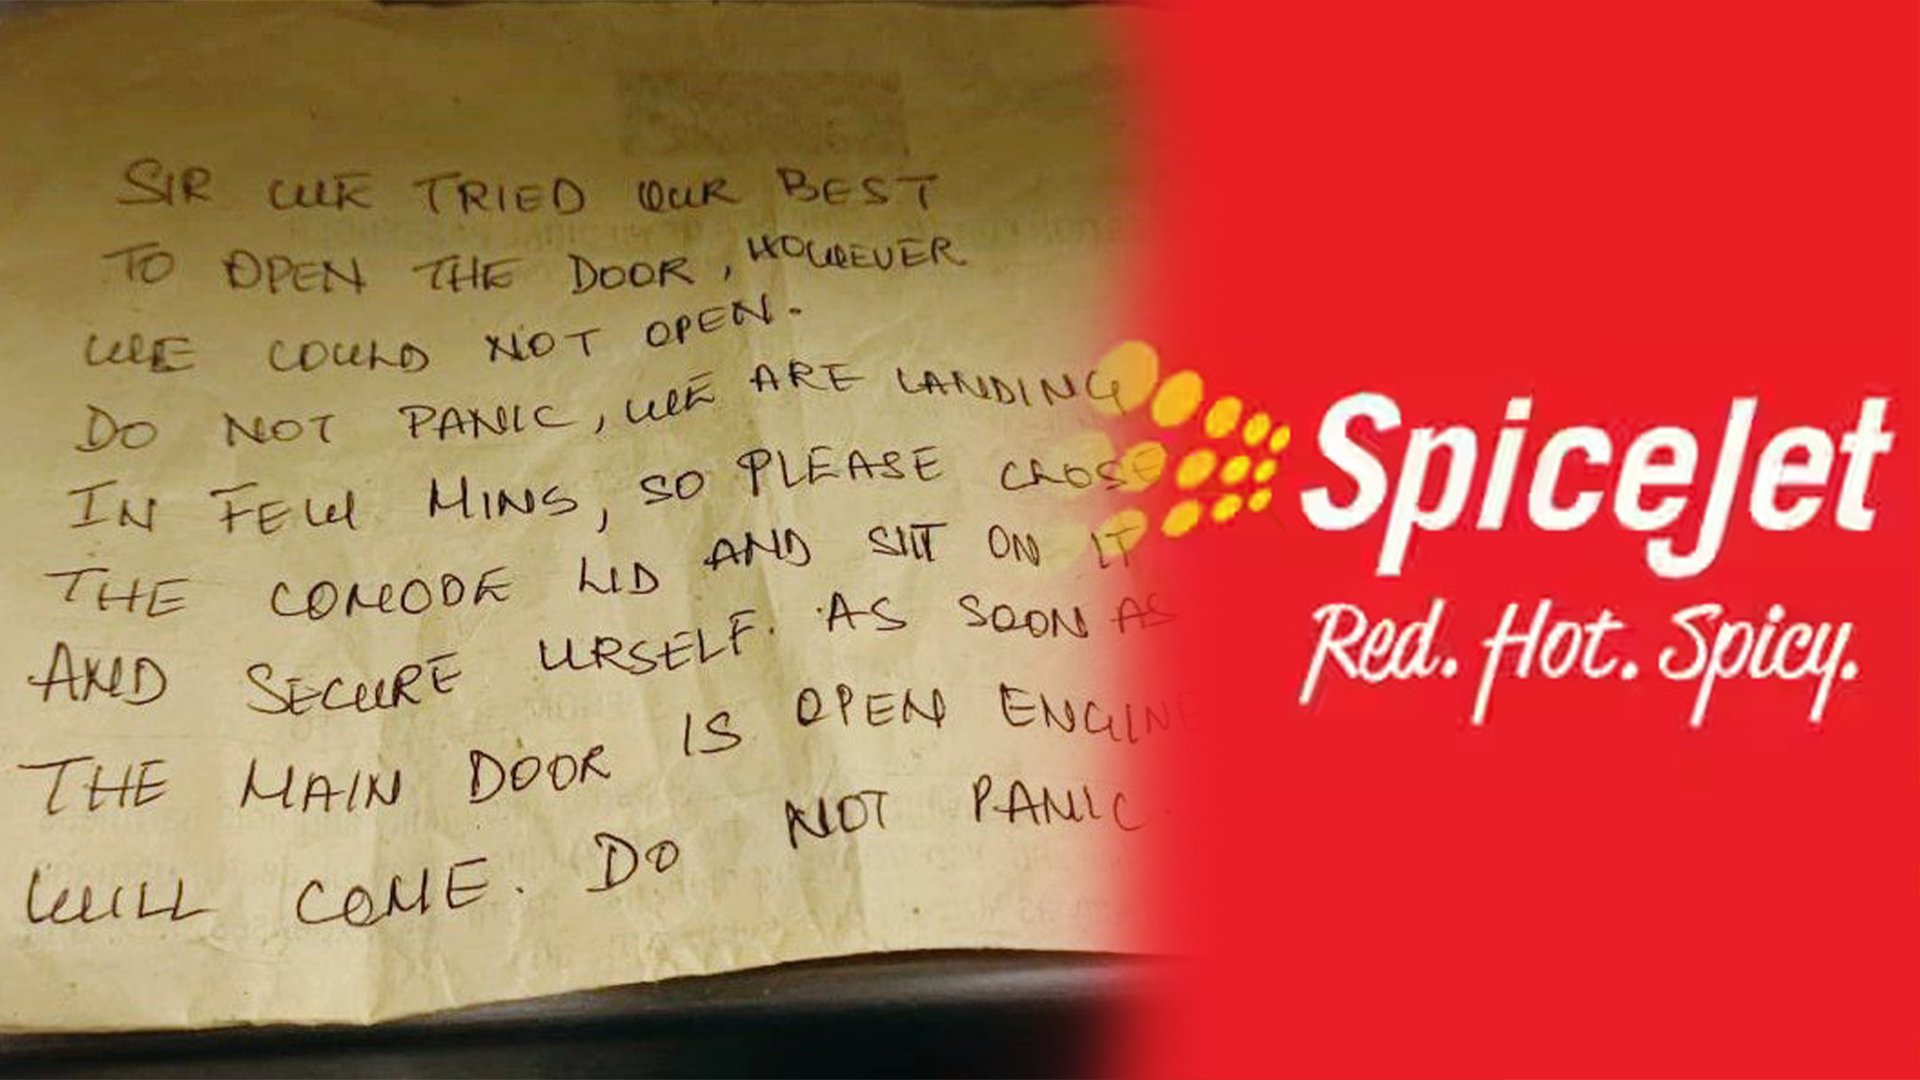 SIR WE TRIED OUR BEST
TO OPEN THE DOOR, HOWEVER
WE COULD NOT OPEN.
DO NOT PANIC, WE ARE LANDING
IN FEW MINS, SO PLEASE CLOSE
THE COMODE LID AND SIT ON IT
AND SECURE URSELF. AS SOON AS
THE MAIN DOOR IS OPEN ENGINE
WILL COME. DO NOT PANIC.
SpiceJet
Red. Hot. Spicy.